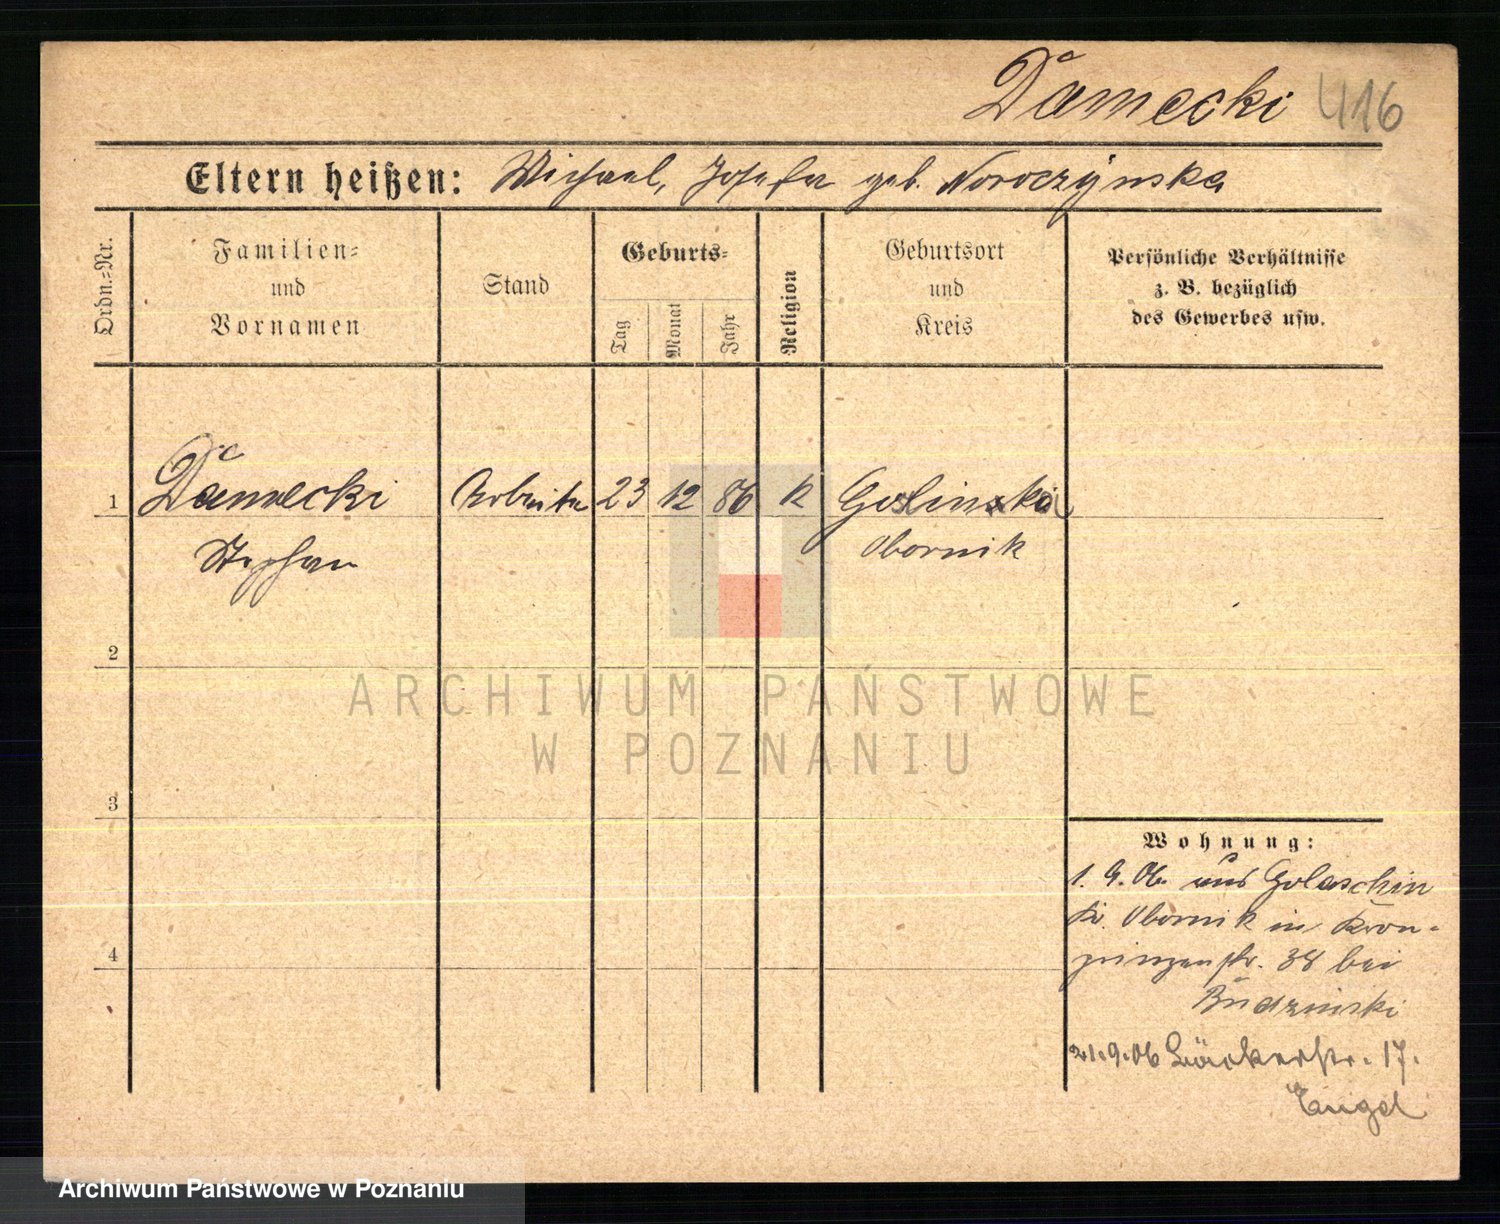 Damecki 416
Eltern heißen: Michael, Josefa geb. Noroczynska
Ordn.=Nr.
Familien=
und
Vornamen
Stand
Geburts=
Tag
Monat
Jahr
Religion
Geburtsort
und
Kreis
Persönliche Verhältnisse
z. B. bezüglich
des Gewerbes usw.
1 Damecki Arbeiter 23 12 86 K
Stephan Obornik
2
3
4
Wohnung:
1. 9. 06. aus Golaschin
Kr. Obornik in Kron-
prinzenstr. 38 bei
Budzinski
21.9.06 Bäckerstr. 17.
Engel
ARCHIWUM PAŃSTWOWE
W POZNANIU
Archiwum Państwowe w Poznaniu